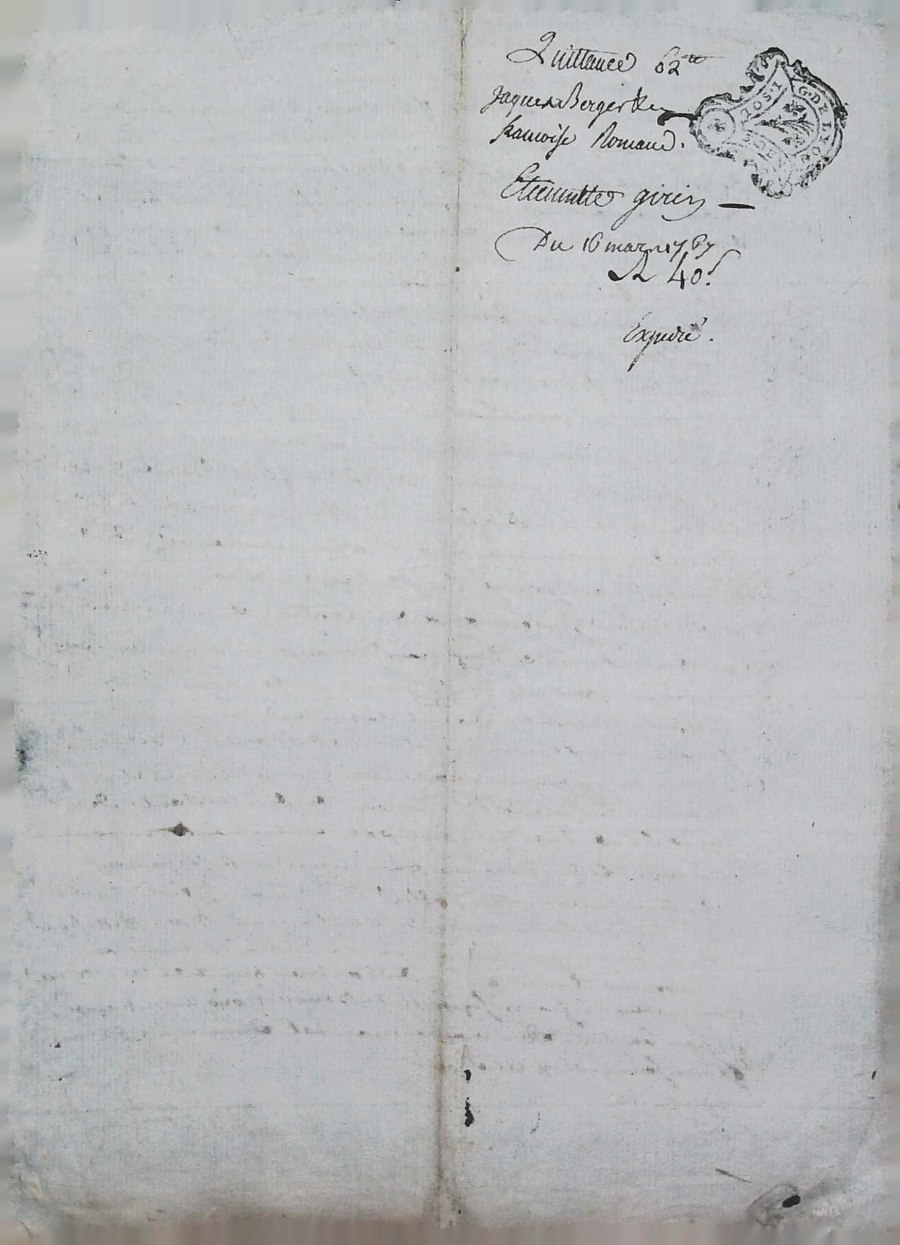 Quittance 62ᵗᵗ
Jaques Berger &
francoise Romand.
Etiennette girin
Du 16 mars 1767
R 40ˢ
Expedié.
G. DE LYON